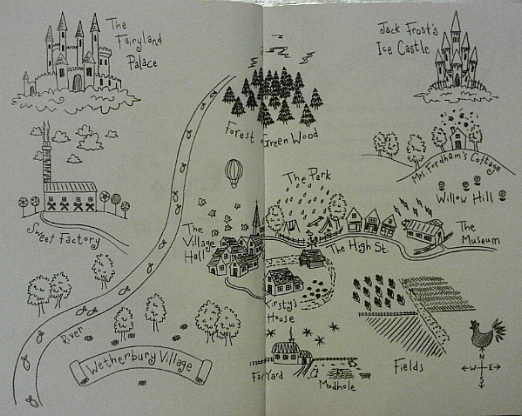 The
Fairyland
Palace
Jack Frost's
Ice Castle
Forest Green Wood
Mrs Fordham's Cottage
Willow Hill
The Park
Sweet Factory
The
Village
Hall
The High St.
The
Museum
Kirsty's
House
River
Wetherbury Village
Farm Yard
Mudhole
Fields
W E
S